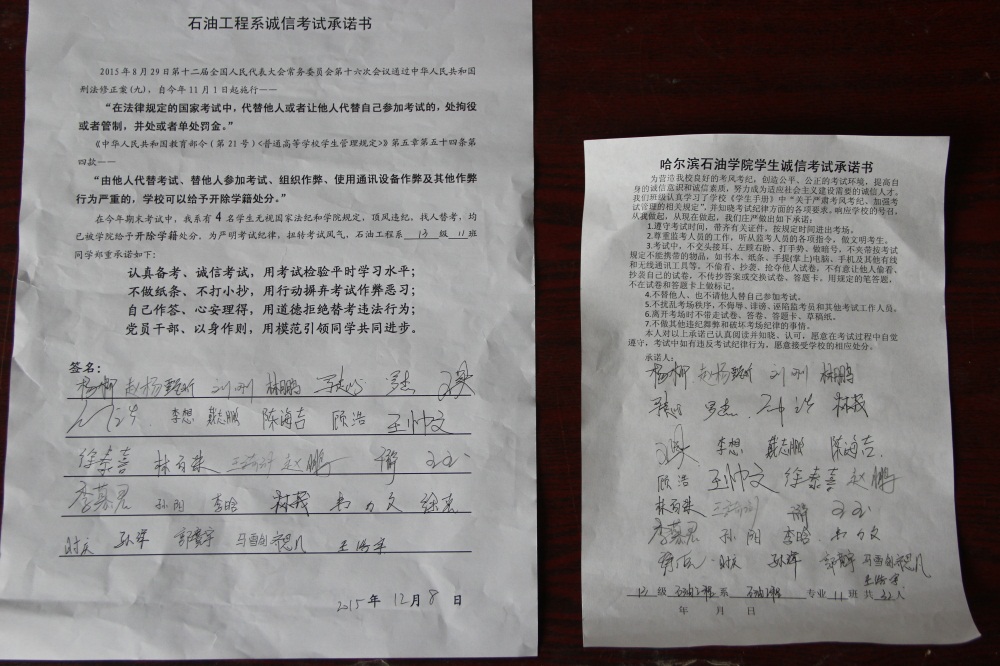 石油工程系诚信考试承诺书
2015年8月29日第十二届全国人民代表大会常务委员会第十六次会议通过中华人民共和国
刑法修正案(九)，自今年11月1日起施行——
“在法律规定的国家考试中，代替他人或者让他人代替自己参加考试的，处拘役
或者管制，并处或者单处罚金。”
《中华人民共和国教育部令（第21号）<普通高等学校学生管理规定>》第五章第五十四条第
四款——
“由他人代替考试、替他人参加考试、组织作弊、使用通讯设备作弊及其他作弊
行为严重的，学校可以给予开除学籍处分。”
在今年期末考试中，我系有4名学生无视国家法纪和学院规定，顶风违纪、找人替考，均
已被学院给予开除学籍处分。为严明考试纪律，扭转考试风气，石油工程系 13 级 11 班
同学郑重承诺如下：
认真备考、诚信考试，用考试检验平时学习水平；
不做纸条、不打小抄，用行动摒弃考试作弊恶习；
自己作答、心安理得，用道德拒绝替考违法行为；
党员干部、以身作则，用模范引领同学共同进步。
签名：
杨柳 赵杨 刘刚 林鹏
李想 戴志鹏 陈海吉 顾浩 王帅文
徐泰喜 赵鹏
李慕君 孙阳 李晗
时庆 孙辉
2015年12月8日
哈尔滨石油学院学生诚信考试承诺书
为营造我校良好的考风考纪，创造公平、公正的考试环境，提高自
身的诚信意识和诚信素质，努力成为适应社会主义建设需要的诚信人才，
我们班级认真学习了学校《学生手册》中“关于严肃考风考纪、加强考
试管理的相关规定”，并知晓考试纪律方面的各项要求，响应学校的号召，
从我做起，从现在做起，我们庄严做出如下承诺：
1.遵守考试时间，带齐有关证件，按规定时间进出考场。
2.尊重监考人员的工作，听从监考人员的各项指令，做文明考生。
3.考试中，不交头接耳、左顾右盼、打手势、做暗号，不夹带按考试
规定不能携带的物品，如书本、纸条、手提(掌上)电脑、手机及其他有线
和无线通讯工具等。不偷看、抄袭、抢夺他人试卷，不有意让他人偷看、
抄袭自己的试卷，不传抄答案或交换试卷、答题卡，用规定的笔答题，
不在试卷和答题卡上做标记。
4.不替他人、也不请他人替自己参加考试。
5.不扰乱考场秩序，不侮辱、诽谤、诬陷监考员和其他考试工作人员。
6.离开考场时不带走试卷、答卷、答题卡、草稿纸。
7.不做其他违纪舞弊和破坏考场纪律的事情。
本人对以上承诺已认真阅读并知晓、认可，愿意在考试过程中自觉
遵守，考试中如有违反考试纪律行为，愿意接受学校的相应处分。
承诺人：
杨柳 赵杨 刘刚 林鹏
李想 戴志鹏 陈海吉
顾浩 王帅文 徐泰喜 赵鹏
李慕君 孙阳 李晗
时庆 孙辉
13 级 石油工程 系 石油工程 专业 11 班 共 32 人
年 月 日